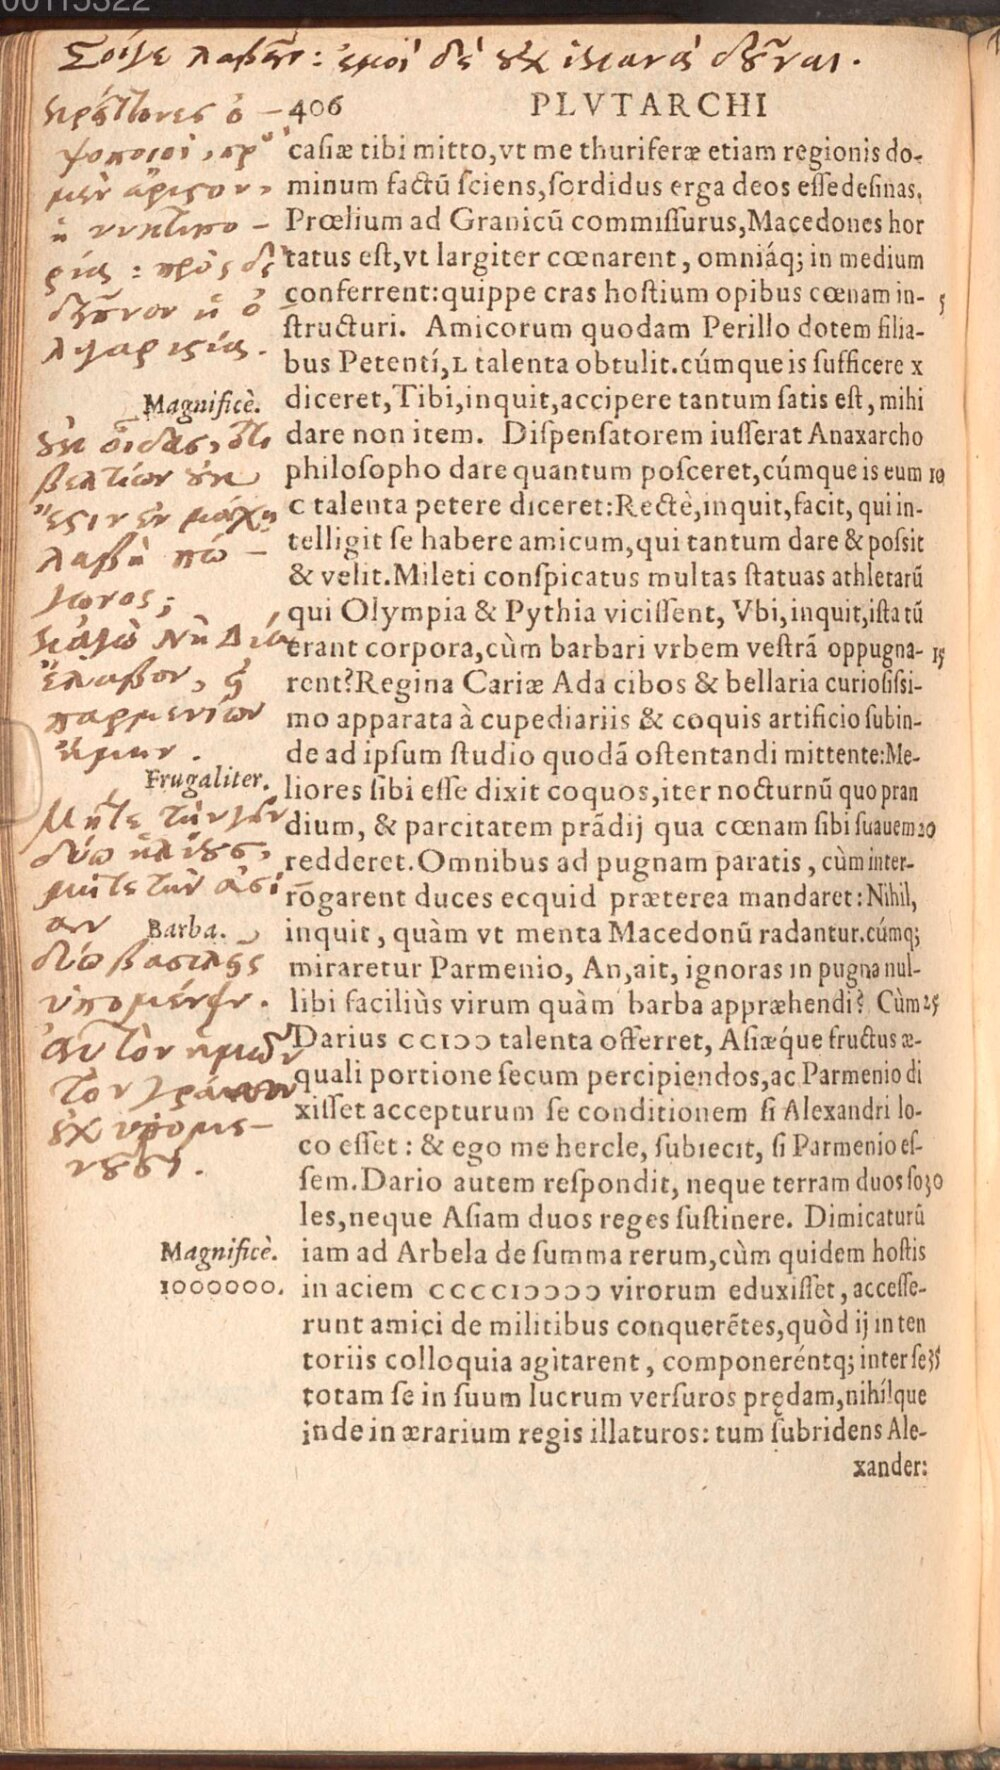 00115322
Σοίγε λαβεῖν: ἐμοὶ δὲ οὐχ ἱκανὰ δοῦναι.
406 PLVTARCHI
casiæ tibi mitto, vt me thuriferæ etiam regionis do-
minum factū sciens, sordidus erga deos esse desinas.
Prœlium ad Granicū commissurus, Macedones hor
tatus est, vt largiter cœnarent, omniáq; in medium
conferrent: quippe cras hostium opibus cœnam in- 5
structuri. Amicorum quodam Perillo dotem filia-
bus Petenti, L talenta obtulit. cúmque is sufficere x
diceret, Tibi, inquit, accipere tantum satis est, mihi
dare non item. Dispensatorem iusserat Anaxarcho
philosopho dare quantum posceret, cúmque is eum 10
C talenta petere diceret: Rectè, inquit, facit, qui in-
telligit se habere amicum, qui tantum dare & possit
& velit. Mileti conspicatus multas statuas athletarū
qui Olympia & Pythia vicissent, Vbi, inquit, ista tū
erant corpora, cùm barbari vrbem vestrā oppugna- 15
rent? Regina Cariæ Ada cibos & bellaria curiosissi-
mo apparata à cupediariis & coquis artificio subin-
de ad ipsum studio quodā ostentandi mittente: Me-
liores sibi esse dixit coquos, iter nocturnū quo pran
dium, & parcitatem prādij qua cœnam sibi suauem 20
redderet. Omnibus ad pugnam paratis, cùm inter-
rogarent duces ecquid præterea mandaret: Nihil,
inquit, quàm vt menta Macedonū radantur. cúmq;
miraretur Parmenio, An, ait, ignoras in pugna nul-
libi faciliùs virum quàm barba appræhendi? Cùm 25
Darius CCIↃↃ talenta offerret, Asiæque fructus æ-
quali portione secum percipiendos, ac Parmenio di
xisset accepturum se conditionem si Alexandri lo-
co esset: & ego me hercle, subiecit, si Parmenio es-
sem. Dario autem respondit, neque terram duos so 30
les, neque Asiam duos reges sustinere. Dimicaturū
iam ad Arbela de summa rerum, cùm quidem hostis
in aciem CCCCIↃↃↃↃ virorum eduxisset, accesse-
runt amici de militibus conquerētes, quòd ij in ten
toriis colloquia agitarent, componeréntq; inter se 35
totam se in suum lucrum versuros prędam, nihílque
inde in ærarium regis illaturos: tum subridens Ale-
xander:
κρείττονες ὀ-
ψοποιοὶ, πρὸς
μὲν ἄριστον,
ἡ νυκτιπο-
ρία: πρὸς δὲ
δεῖπνον ἡ ὀ
λιγαριστία.
Magnificè.
οὐκ οἶδας, ὅτι
βελτίων οὐκ
ἔστιν ἐν μάχῃ
λαβὴ πώ-
γωνος;
κἀγὼ Νὴ Δία
ἔλαβον, εἰ
παρμενίων
ἤμην.
Frugaliter.
Μήτε τὴν γῆν
δύω ἡλίους,
μήτε τὴν ἀσί
αν
Barba.
δύω βασιλεῖς
ὑπομένειν.
Αὐτὸν ἡμῶν
τὸν
οὐχ ὑπομε-
νοῦσι.
Magnificè.
1000000.